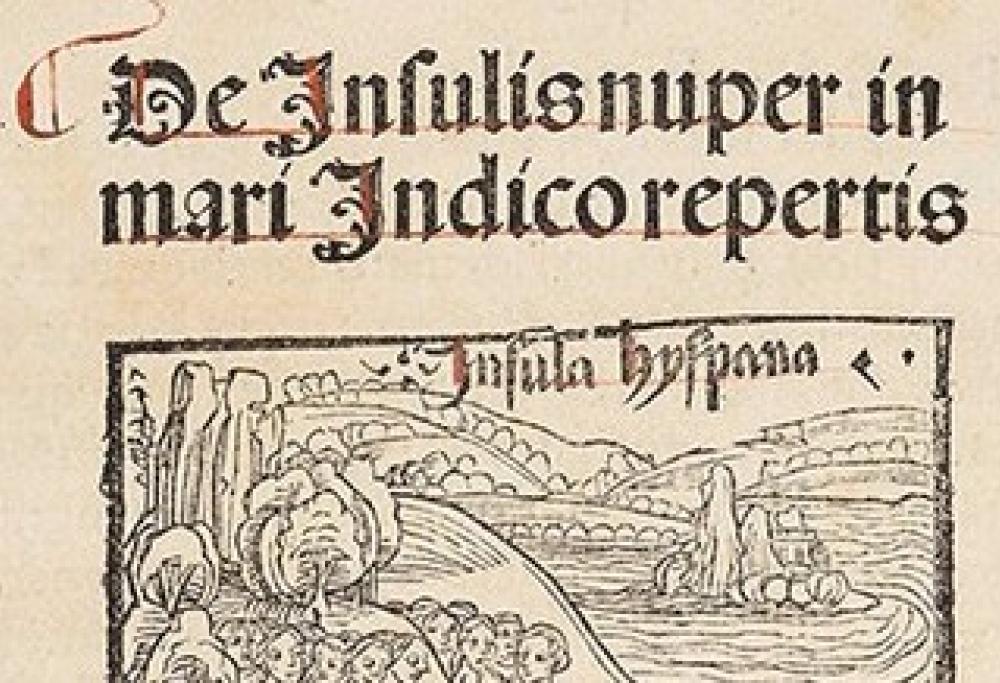 De Insulis nuper in
mari Indico repertis
Insula hyspana